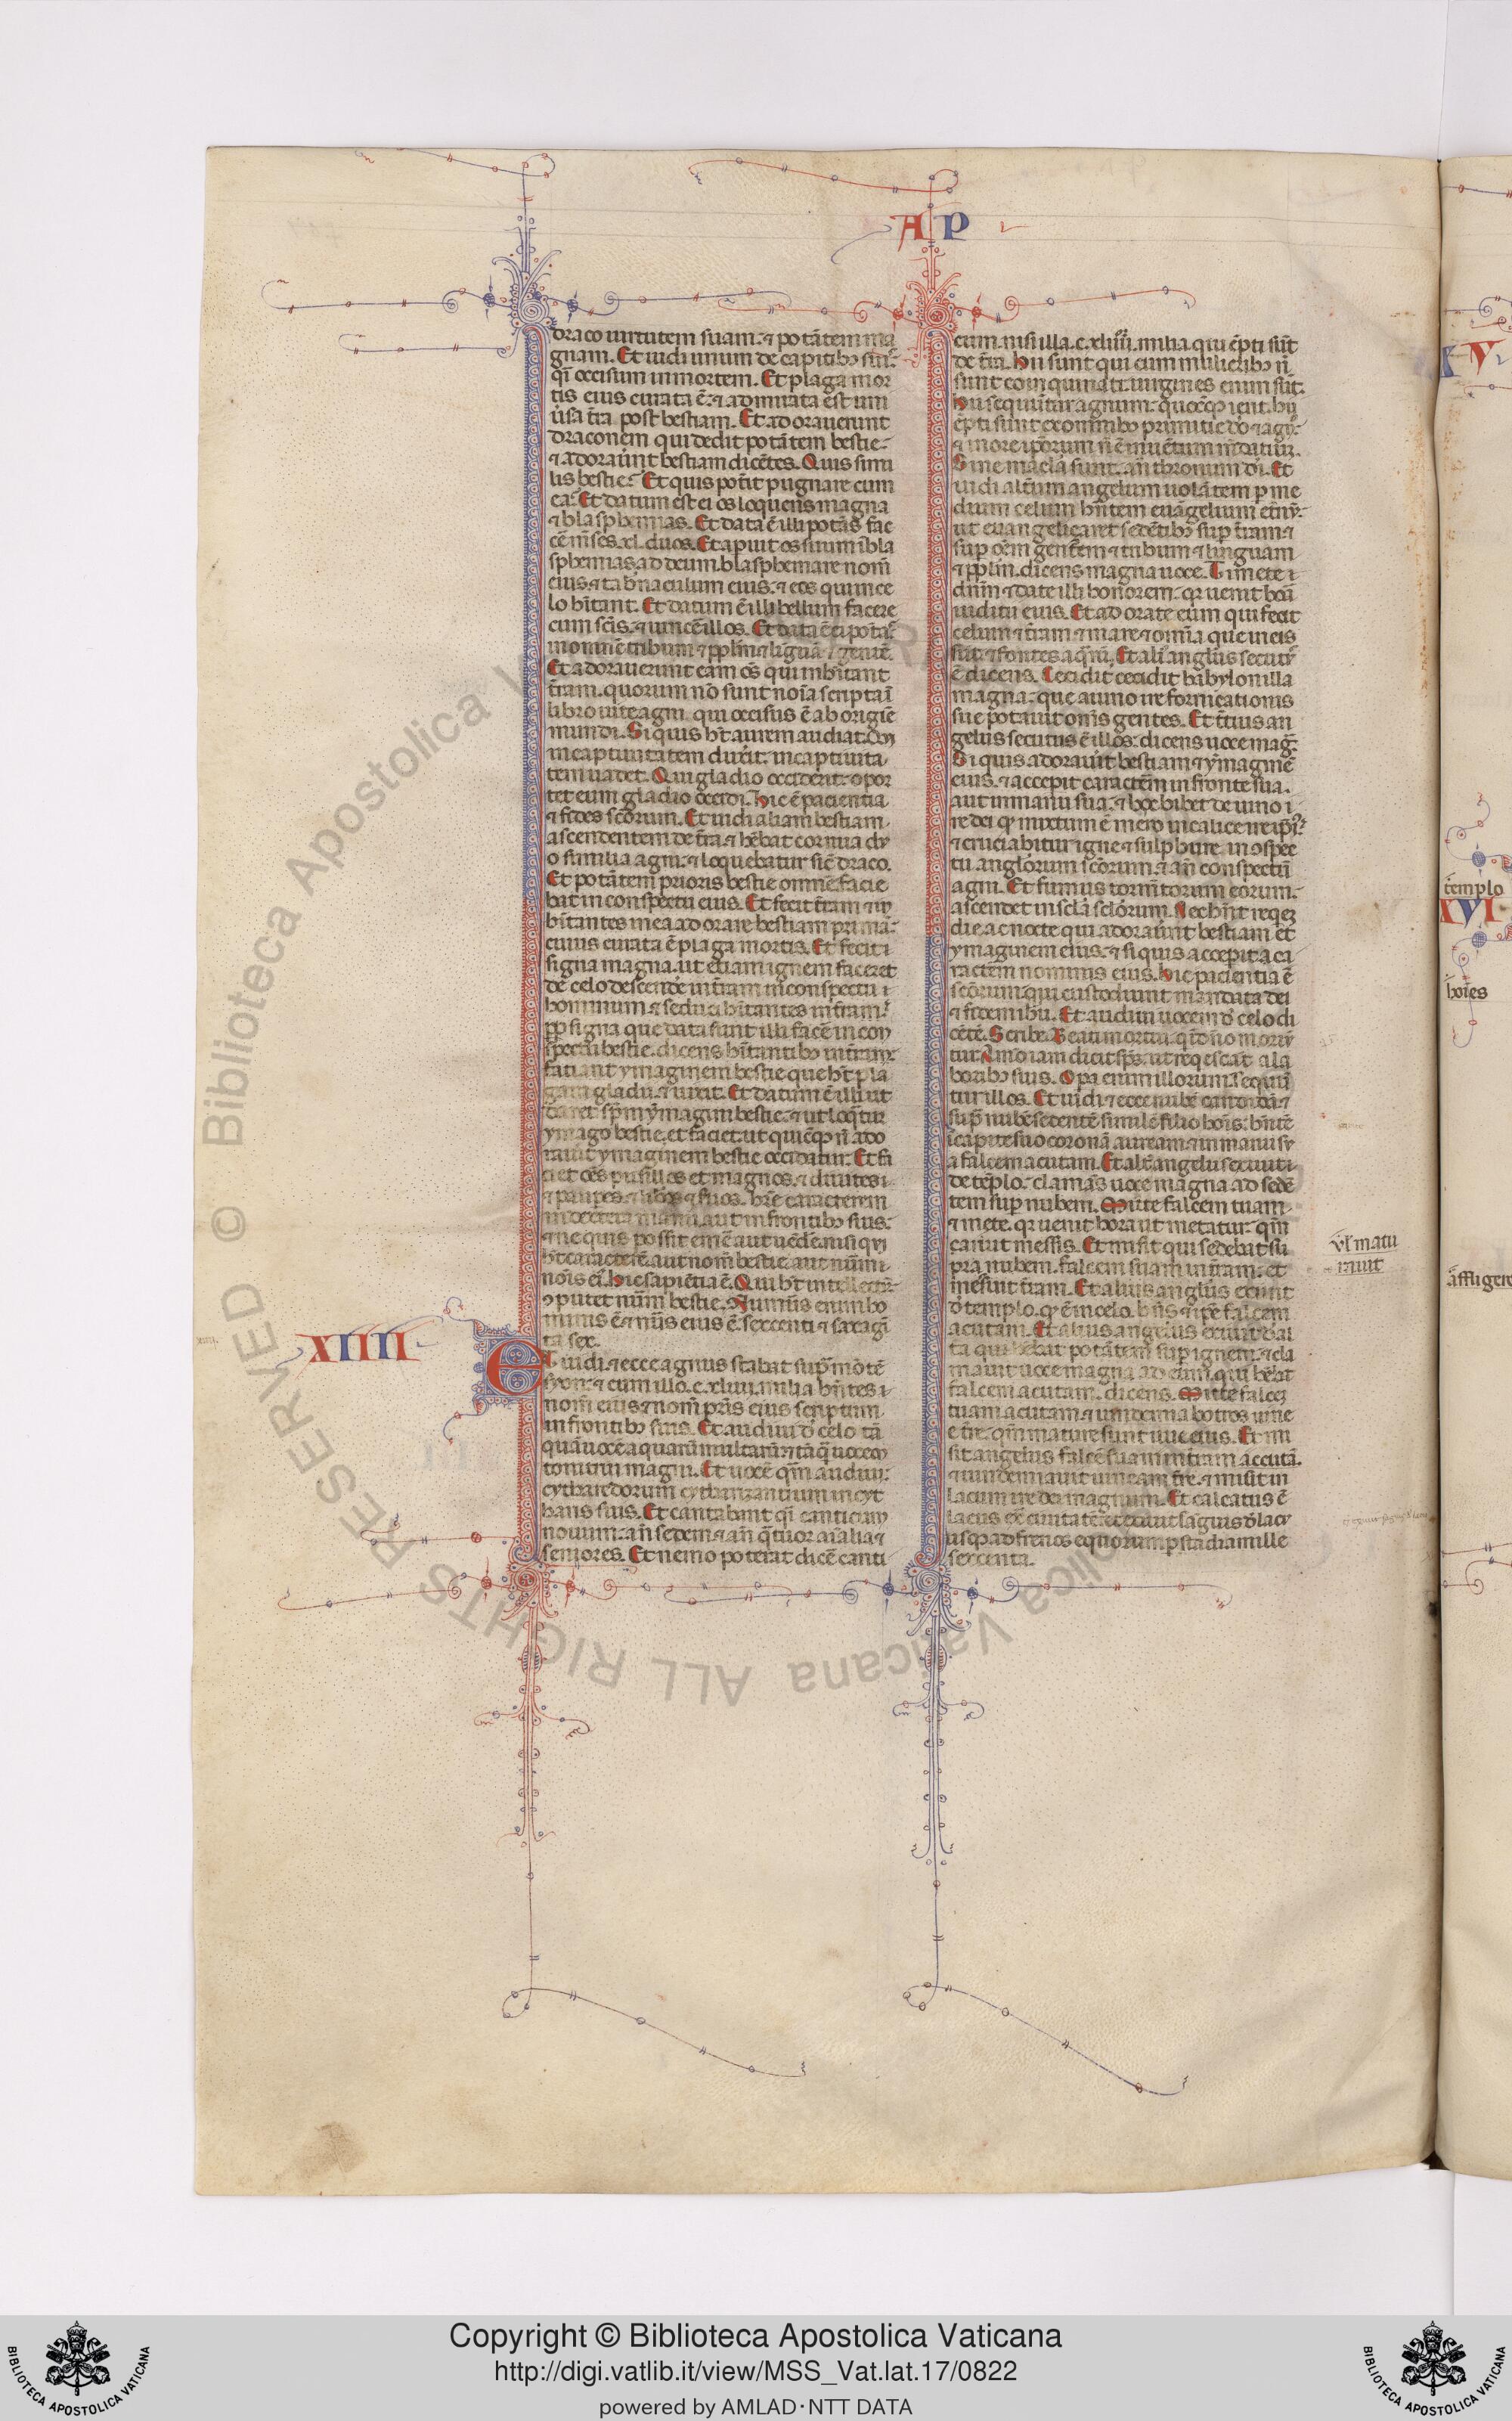 AP
draco uirtutem suam. ⁊ potãtem ma
gnam. Et uidi unum de capitibꝰ suis
q̃i occisum in mortem. Et plaga mor
tis eius curata ẽ. ⁊ admirata est uni
ũsa t̃ra post bestiam. Et adorauerunt
draconem qui dedit potãtem bestie.
⁊ adorau̾unt bestiam dicẽtes. Quis simi
lis bestie. Et quis pot̾it pugnare cum
ea. Et datum est ei os loquens magna
⁊ blasphemias. Et data ẽ illi potãs fac̾
ẽ mẽses .xl. duos. Et apuit os suum ĩ bla
sphemias ad deum. blasphemare nom̃
eius. ⁊ tab̾naculum eius. ⁊ eos qui in ce
lo hĩtant. Et datum ẽ illi bellum facere
cum scĩs. ⁊ uincẽ illos. Et data ẽ ei potãs
in omnẽ tribum ⁊ pplm̃ ⁊ liguã ⁊ gentẽ.
Et adorauerunt eam oẽs qui inhĩtant
t̃ram. quorum nõ sunt noĩa scripta ĩ
libro uite agni. qui occisus ẽ ab origiẽ
mundi. Si quis hẽt aurem audiat. Qui
in captiuitatem duxĩt. in captiuita
tem uadet. Qui gladio occiderit. opor
tet eum gladio occidi. Hic ẽ paciencia
⁊ fides scõrum. Et uidi aliam bestiam
ascendentem de t̃ra. ⁊ hẽbat cornua du
o similia agni. ⁊ loquebatur sic̃ draco.
Et potãtem prioris bestie omnẽ facie
bat in conspectu eius. Et fecit t̃ram ⁊ in
hĩtantes in ea adorare bestiam primã
cuius curata ẽ plaga mortis. Et fecit
signa magna. ut etiam ignem faceret
de celo descendẽ in t̃ram in conspectu
hominum ⁊ seduxit hĩtantes in t̃ram
pp̃ signa que data sunt illi facẽ in con
spectu bestie. dicens hĩtantibꝰ in t̃ram
fatiant ymaginem bestie que hẽt pla
gam gladii. ⁊ uixit. Et datum ẽ illi ut
daret sp̃m ymagini bestie. ⁊ ut loq̃tur
ymago bestie. et faciet. ut quicũqꝫ ñ ado
rauit ymaginem bestie occidatur. Et fa
ciet oẽs pusillos et magnos. ⁊ diuites
⁊ paupes. ⁊ liberos ⁊ seruos. hr̃e caracterem
in dextera manu. aut in frontibꝰ suis.
⁊ ne quis possit emẽ aut uẽdẽ. nisi qui
hẽt caracterẽ. aut nom̃ bestie. aut num̃
noĩs ei. Hic sapiẽtia ẽ. Qui hẽt intellectũ
cõputet num̃ bestie. Numerus enim ho
minis ẽ. ⁊ nũs eius ẽ. sexcenti ⁊ saxagĩ
ta sex.
XIIII
Et uidi. ⁊ ecce agnus stabat sup̃ mõtẽ
syon. ⁊ cum illo .c.xliiii. milia hñtes
nom̃ eius ⁊ nom̃ pr̃is eius scriptum
in frontibꝰ suis. Et audiui uocẽ de celo tã
quã uocẽ aquarũ multarũ. ⁊ tãq̃ uocem
tonitrui magni. Et uocẽ q̃m audiui.
cytharedorum cytharizantium in cyt
haris suis. Et cantabant q̃i canticum
nouum. añ sedem ⁊ añ q̃tuor aĩalia ⁊
seniores. Et nemo poterat dicẽ canti
cum. nisi illa .c.xliiii. milia. qui ẽpti sũt
de t̃ra. Hii sunt qui cum mulieribꝰ ñ
sunt coinquinati. uirgines enim sũt.
Hii sequũtur agnum. quocũqꝫ ierit. hii
ẽpti sunt ex omnibꝰ primitie deo ⁊ agno
⁊ in ore ip̃orum ñ ẽ inuẽtum mẽdatium.
Sine macla sunt. añ thronum dei. Et
uidi alterum angelum uolãtem p me
dium celum hñtem euãgelium eternũ.
ut euangelizaret sedẽtibꝰ sup t̃ram ⁊
sup oẽm gentem ⁊ tribum ⁊ linguam
⁊ pplm̃. dicens magna uoce. Timete
dñm ⁊ date illi honorem. qr uenit hora
iuditii eius. Et adorate eum qui fecit
celum ⁊ t̃ram ⁊ mare ⁊ omĩa que in eis
sũt. ⁊ fontes aq̃rũ. Et ali᷒ angl̃us secut᷒
ẽ dicens. Cecidit cecidit babylon illa
magna. que a uino ire fornicationis
sue potauit omĩs gentes. Et t̃tius an
gelus secutus ẽ illos. dicens uoce mag̃.
Si quis adorau̾it bestiam ⁊ ymaginẽ
eius. ⁊ accepit caractẽm in fronte sua.
aut in manu sua. ⁊ hoc bibet de uino i
re dei qđ mixtum ẽ mero in calice ire ip̃i᷒
⁊ cruciabitur igne ⁊ sulphure. in cõspec
tu anglorum scõrum. ⁊ añ conspectũ
agni. Et fumus torm̃torum eorum.
ascendet in sclã sclõrum. Nec hñt reqeꝫ
die ac nocte qui adorau̾unt bestiam et
ymaginem eius. ⁊ si quis accepit ca
ractẽm nominis eius. Hic pacientia ẽ
scõrum. qui custodiunt mandata dei
⁊ fidem ihũ. Et audiui uocem de celo di
cẽtẽ. Scribe. Beati mortui. qi in dño moriũ
tur. Amodo iam dicit sp̃s. ut reqescãt a la
boribꝰ suis. Opa enim illorum sequũ
tur illos. Et uidi ⁊ ecce nubẽ candidã. ⁊
sup̃ nubẽ sedentẽ similẽ filio hoĩs. hñtẽ
ĩ capite suo coronã auream. ⁊ in manu su
a falcem acutam. Et alt̾ angelus exiuit
de tẽplo. clamãs uoce magna ad sedẽ
tem sup nubem. Mitte falcem tuam
⁊ mete. qr uenit hora ut metatur. qm̃
caruit messis. Et misit qui sedebat su
pra nubem. falcem suam in t̃ram. et
messuit t̃ram. Et alius anglus exiuit
de templo. qđ ẽ in celo. hñs ⁊ ip̃e falcem
acutam. Et alius angelus exiuit de al
ta qui hẽbat potãtem sup ignem. ⁊ cla
mauit uoce magna ad eum. qui hẽbat
falcem acutam. dicens. Mitte falceꝫ
tuam acutam. ⁊ uindemia botros uine
e t̃re. qm̃ mature sunt uue eius. Et mi
sit angelus falcẽ suam in t̃ram accutã.
⁊ uindemiauit uineam t̃re. ⁊ misit in
lacum ire dei magnum. Et calcatus ẽ
lacus ex̃ ciuitatẽ. et exiuit sãguis de lacu
usqꝫ ad frenos equorum p stadia mille
sexcenta.
ul̃ matu
rauit
V
templo
XVI
hoĩes
ãffligere
© Biblioteca Apostolica Vaticana ALL RIGHTS RESERVED
Copyright © Biblioteca Apostolica Vaticana
http://digi.vatlib.it/view/MSS_Vat.lat.17/0822
powered by AMLAD·NTT DATA
BIBLIOTECA APOSTOLICA VATICANA
BIBLIOTECA APOSTOLICA VATICANA